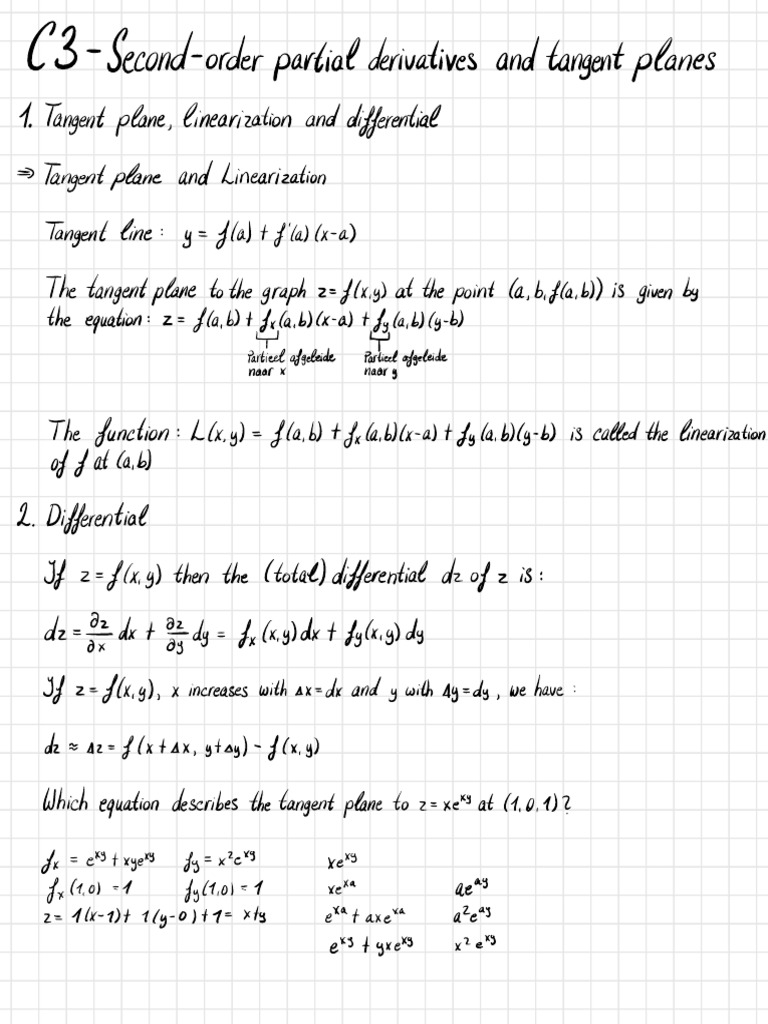 C3 - Second-order partial derivatives and tangent planes
1. Tangent plane, linearization and differential
⇒ Tangent plane and Linearization
Tangent line: y = f(a) + f'(a)(x-a)
The tangent plane to the graph z=f(x,y) at the point (a,b,f(a,b)) is given by
the equation: z = f(a,b) + fx(a,b)(x-a) + fy(a,b)(y-b)
Partieel afgeleide Partieel afgeleide
naar x naar y
The function: L(x,y) = f(a,b) + fx(a,b)(x-a) + fy(a,b)(y-b) is called the linearization
of f at (a,b)
2. Differential
If z = f(x,y) then the (total) differential dz of z is:
dz = ∂z/∂x dx + ∂z/∂y dy = fx(x,y)dx + fy(x,y)dy
If z = f(x,y), x increases with Δx=dx and y with Δy=dy, we have:
dz ≈ Δz = f(x+Δx, y+Δy) - f(x,y)
Which equation describes the tangent plane to z = xe^xy at (1,0,1)?
fx = e^xy + xye^xy fy = x²e^xy xe^xy
fx(1,0) = 1 fy(1,0) = 1 xe^xa ae^ay
z = 1(x-1) + 1(y-0) + 1 = x+y e^xa + axe^xa a²e^ay
e^xy + yxe^xy x²e^xy